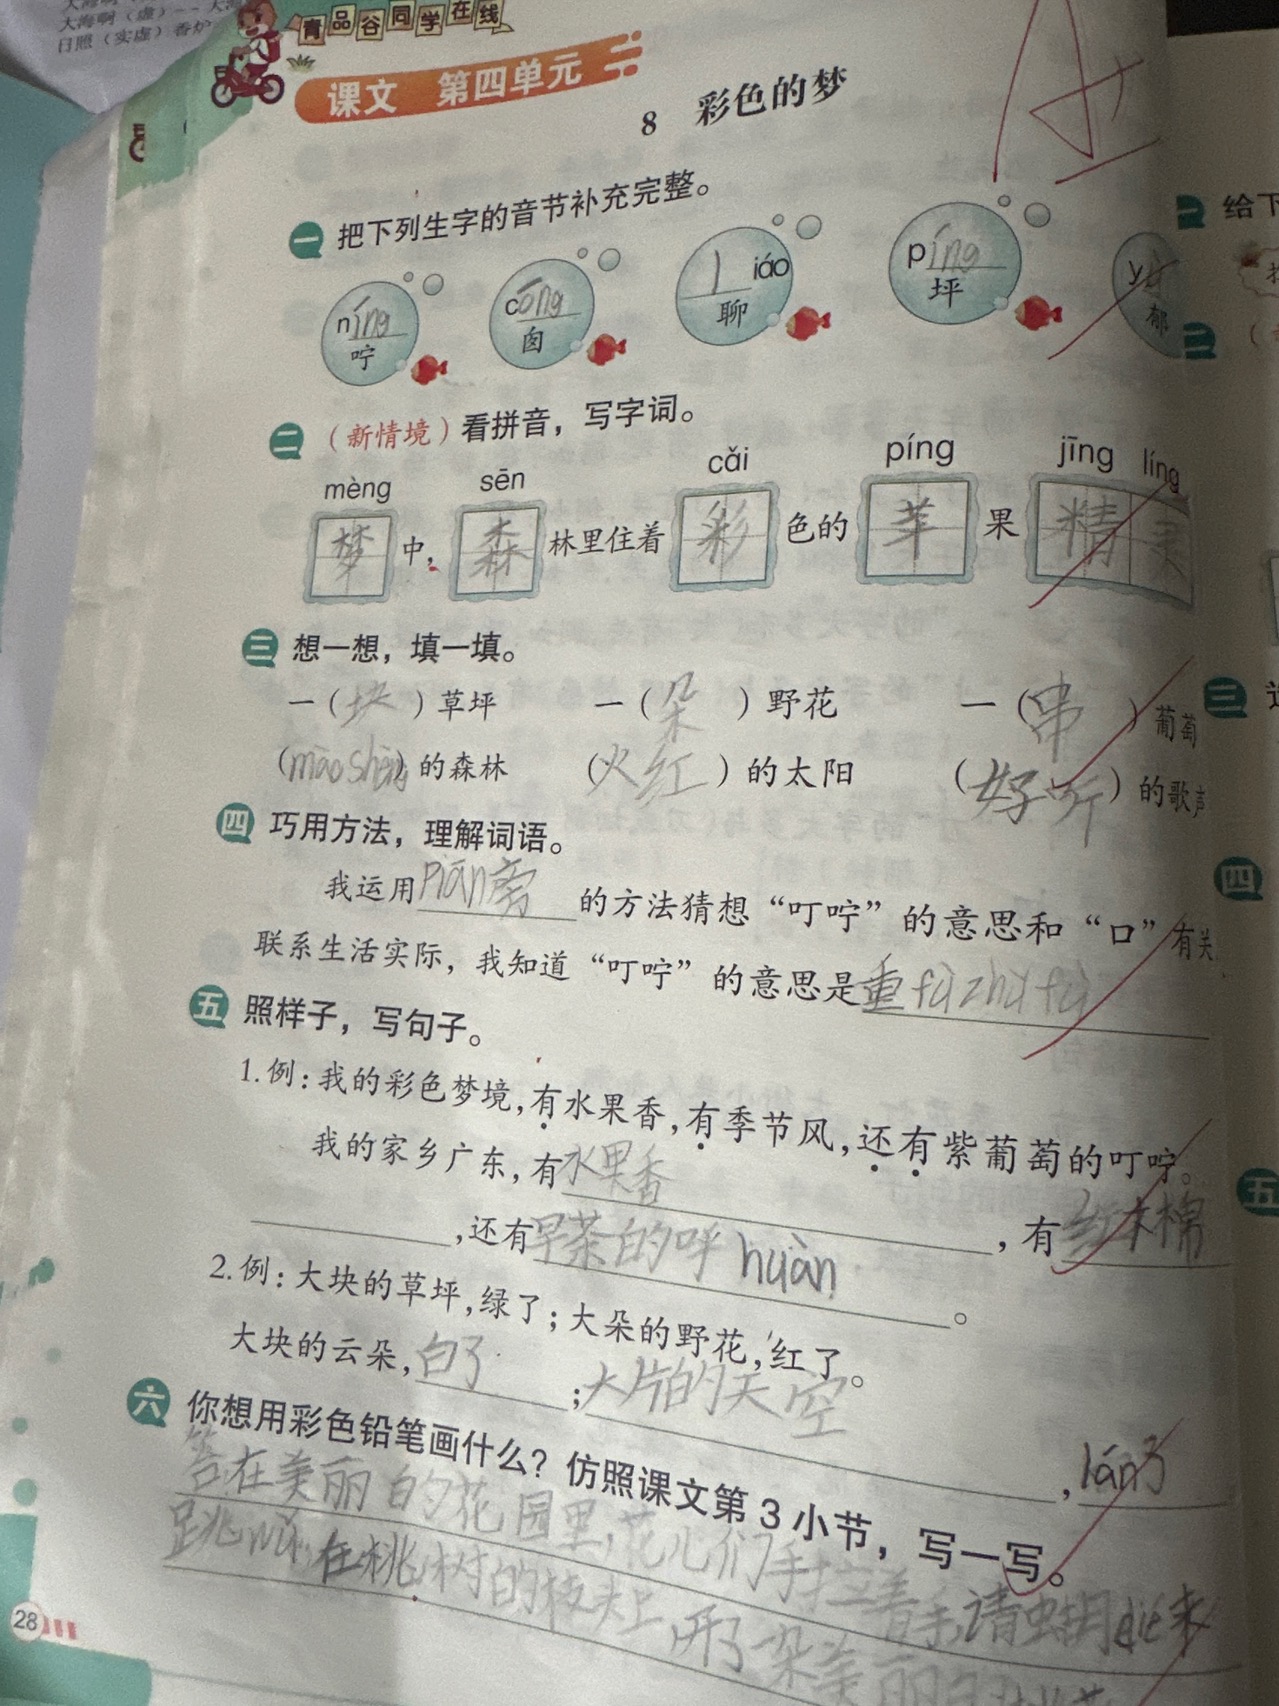 大海啊（虚）--大海
日照（实虚）香炉
青品谷同学在线
课文 第四单元
8 彩色的梦
A+
一 把下列生字的音节补充完整。
níng cōng liáo píng yù
咛 囱 聊 坪 郁
二 （新情境）看拼音，写字词。
mèng sēn cǎi píng jīng líng
梦中，森林里住着彩色的苹果精灵
三 想一想，填一填。
一（块）草坪 一（朵）野花 一（串）葡萄
（mào shèng）的森林 （火红）的太阳 （好听）的歌声
四 巧用方法，理解词语。
我运用piān旁的方法猜想“叮咛”的意思和“口”有关
联系生活实际，我知道“叮咛”的意思是重fù zhǔ fù
五 照样子，写句子。
1.例：我的彩色梦境，有水果香，有季节风，还有紫葡萄的叮咛。
我的家乡广东，有水果香，有红木棉
，还有早茶的呼huàn。
2.例：大块的草坪，绿了；大朵的野花，红了。
大块的云朵，白了；大片的天空，lán了
六 你想用彩色铅笔画什么？仿照课文第3小节，写一写。
答:在美丽的花园里，花儿们手拉着手,请蝴dié来
跳wǔ,在桃树的枝头上,开了一朵美丽的
28
二 给下
三
四
五